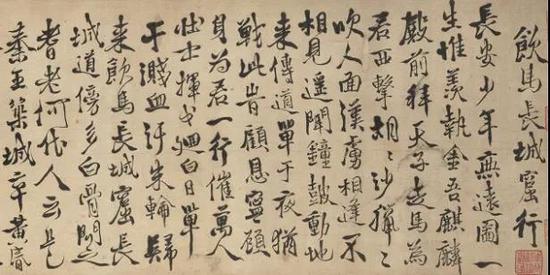 飲馬長城窟行
長安少年無遠圖一
生惟羨執金吾麒麟
殿前拜天子走馬為
君西擊胡々沙獵々
吹人面漢虜相逢不
相見遙聞鐘鼓動地
来傳道單于夜猶
戰此旹顧恩寧顧
身為君一行催萬人
壮士揮戈迴白日單
于濺血汙朱輪歸
来飲馬長城窟長
城道傍多白骨問之
耆老何代人云是
秦王築城卒黃昏